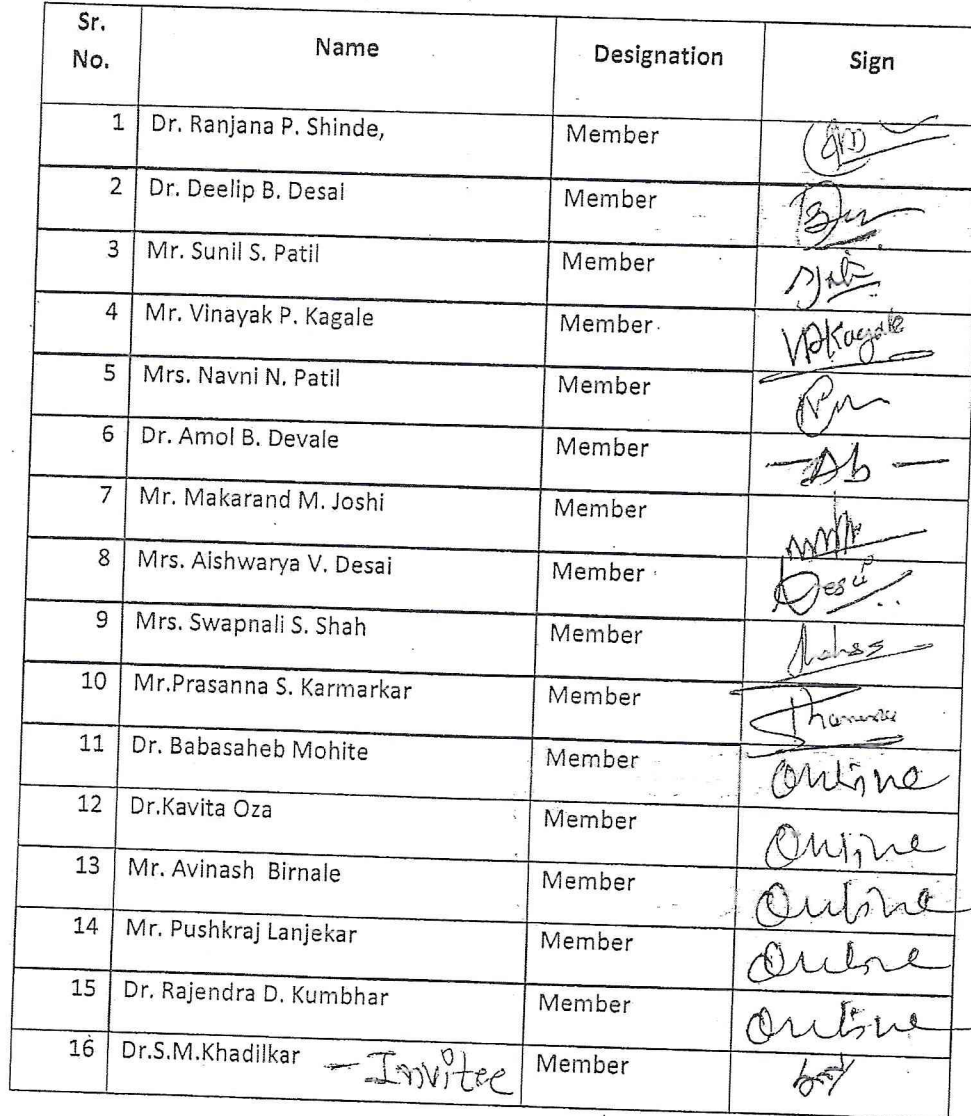 Sr. No. Name Designation Sign
1 Dr. Ranjana P. Shinde, Member
2 Dr. Deelip B. Desai Member
3 Mr. Sunil S. Patil Member
4 Mr. Vinayak P. Kagale Member VPKagale
5 Mrs. Navni N. Patil Member
6 Dr. Amol B. Devale Member - Ab -
7 Mr. Makarand M. Joshi Member
8 Mrs. Aishwarya V. Desai Member Desai
9 Mrs. Swapnali S. Shah Member
10 Mr.Prasanna S. Karmarkar Member
11 Dr. Babasaheb Mohite Member Online
12 Dr.Kavita Oza Member Online
13 Mr. Avinash Birnale Member Online
14 Mr. Pushkraj Lanjekar Member Online
15 Dr. Rajendra D. Kumbhar Member Online
16 Dr.S.M.Khadilkar - Invitee Member